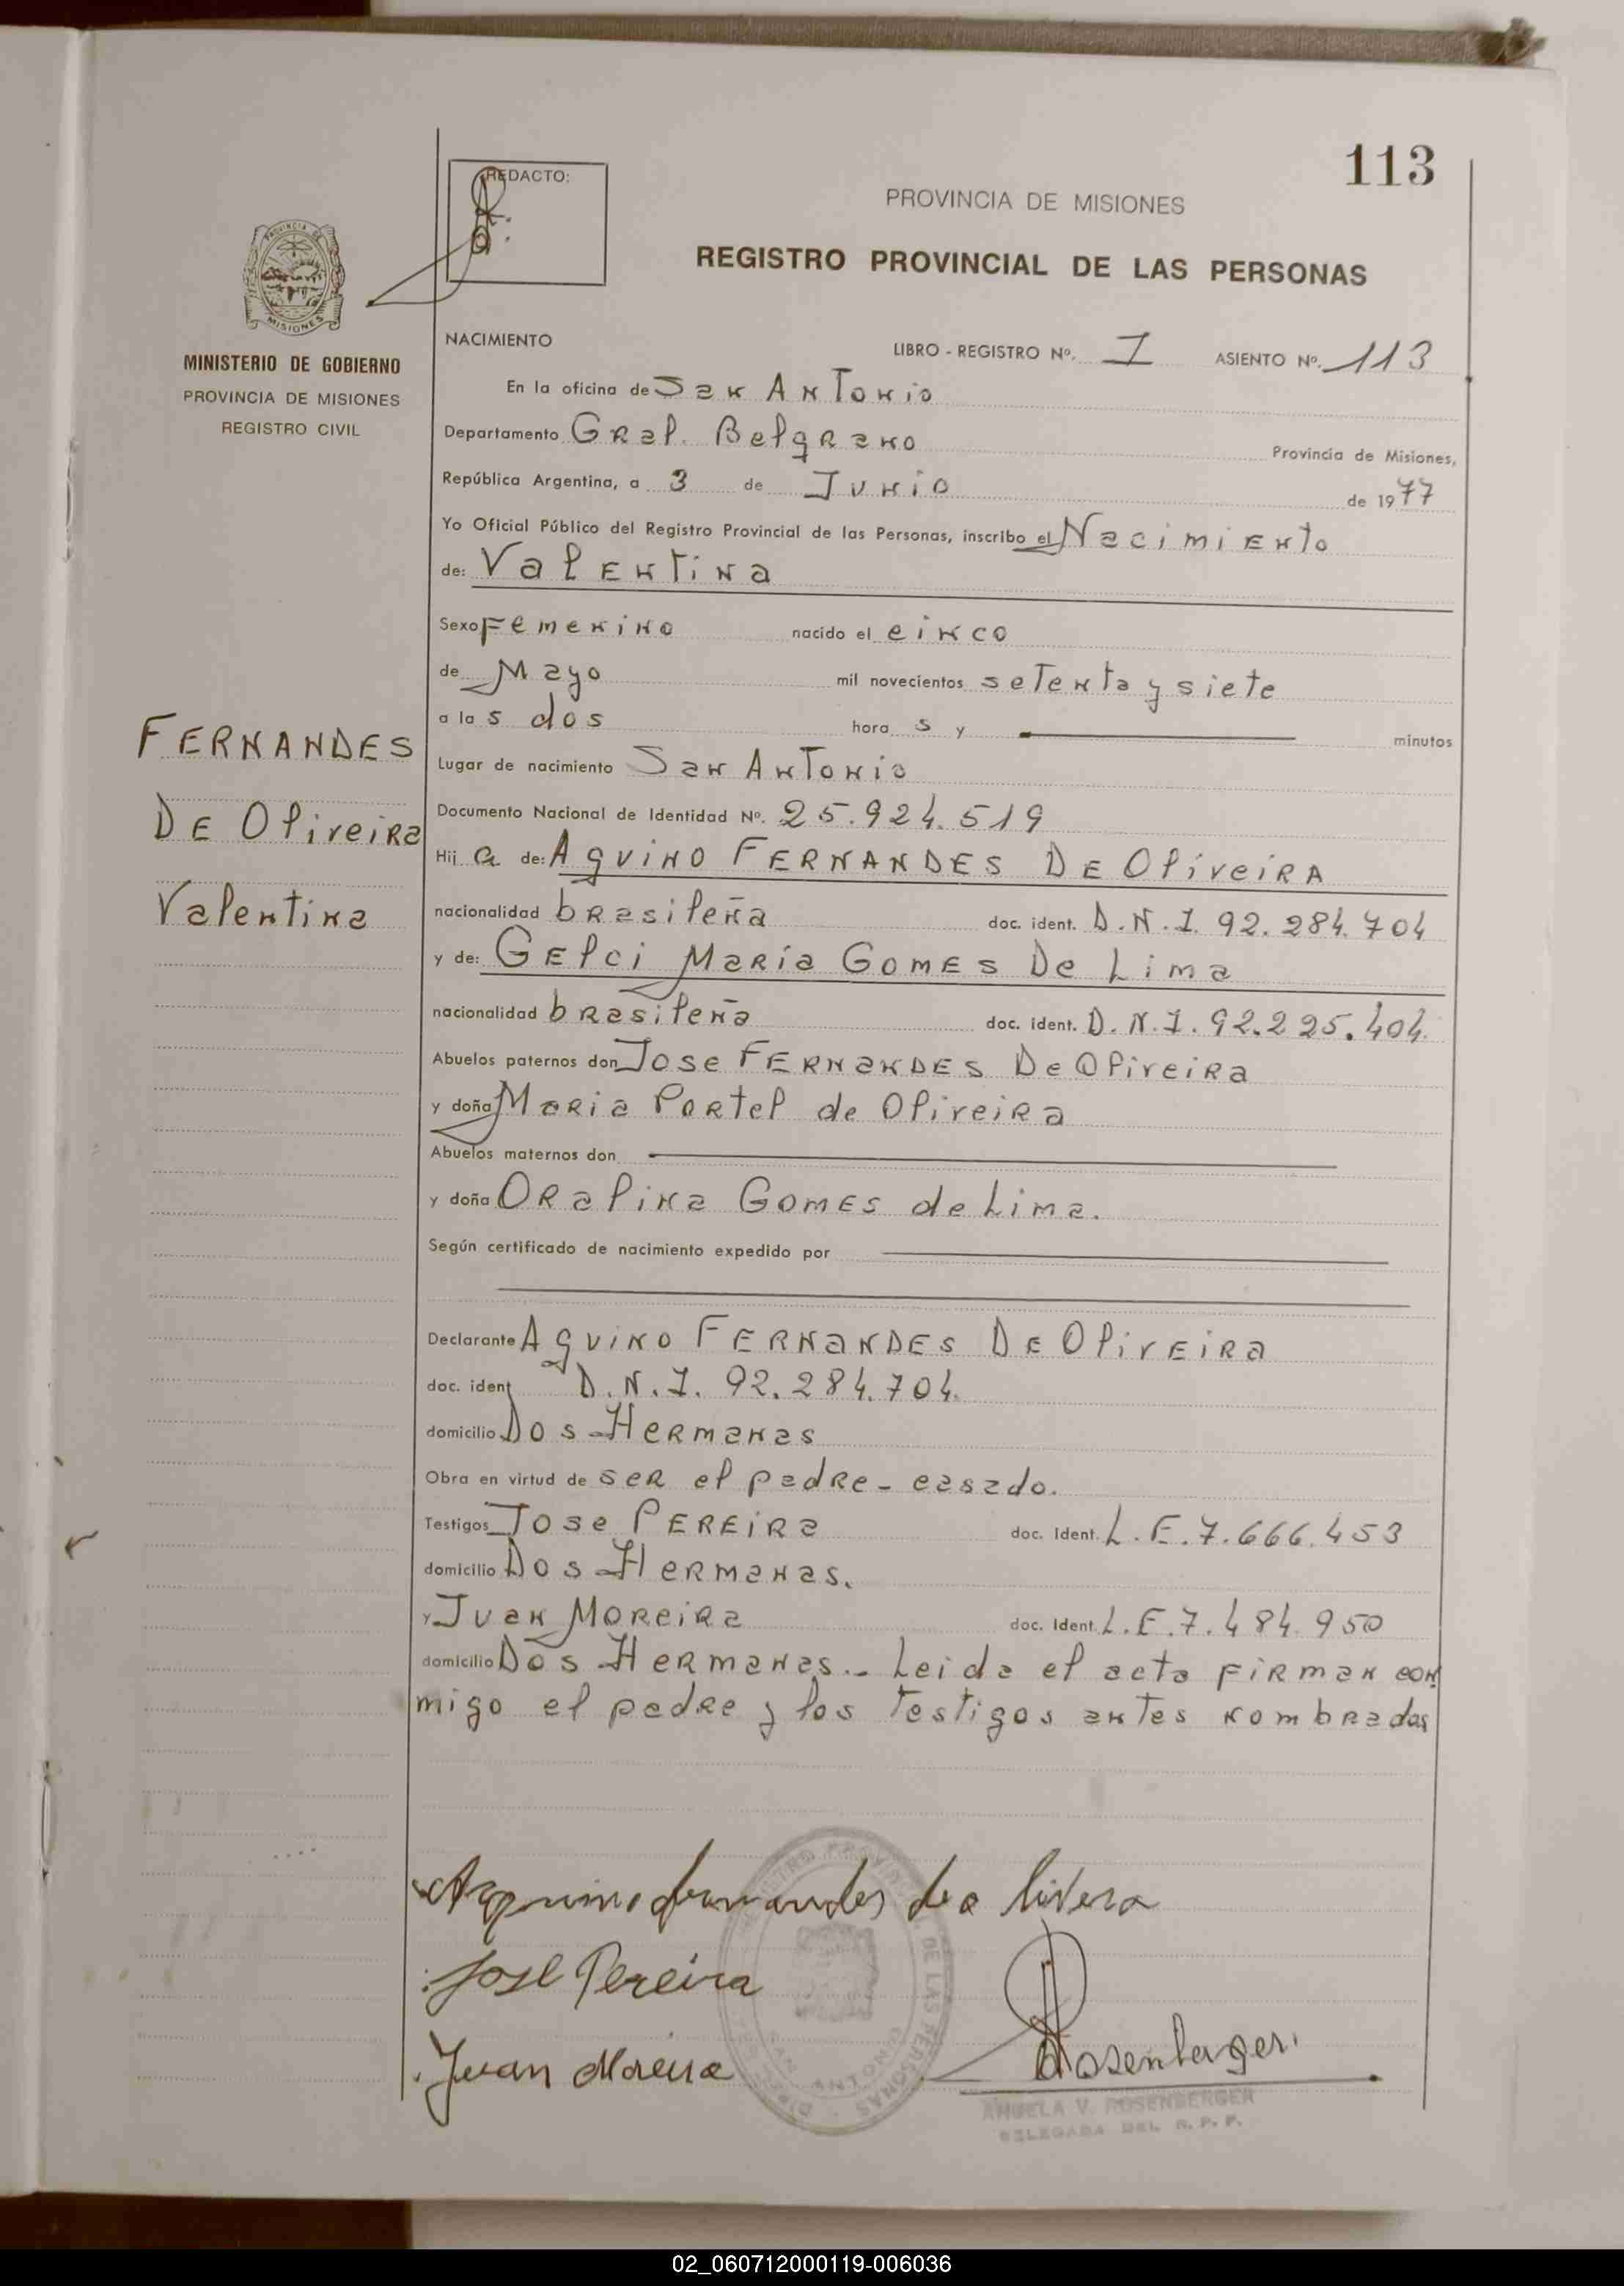 113
REDACTO:
PROVINCIA DE MISIONES
REGISTRO PROVINCIAL DE LAS PERSONAS
PROVINCIA DE
MISIONES
MINISTERIO DE GOBIERNO
PROVINCIA DE MISIONES
REGISTRO CIVIL
NACIMIENTO
LIBRO - REGISTRO Nº. I ASIENTO Nº. 113
En la oficina de San Antonio
Departamento Gral. Belgrano Provincia de Misiones,
República Argentina, a 3 de Junio de 1977
Yo Oficial Público del Registro Provincial de las Personas, inscribo el Nacimiento
de: Valentina
Sexo Femenino nacido el cinco
de Mayo mil novecientos setenta y siete
a las dos horas y minutos
FERNANDES
DE Oliveira
Valentina
Lugar de nacimiento San Antonio
Documento Nacional de Identidad Nº. 25.924.519
Hija de: Aquino FERNANDES DE OliveiRA
nacionalidad brasileña doc. ident. D.N.I. 92.284.704
y de: Gelci María Gomes De Lima
nacionalidad brasileña doc. ident. D.N.I. 92.225.404.
Abuelos paternos don Jose FERNANDES De Oliveira
y doña Maria Portel de Oliveira
Abuelos maternos don
y doña Oralina Gomes de Lima.
Según certificado de nacimiento expedido por
Declarante Aquino FERNANDES DE Oliveira
doc. ident D.N.I. 92.284.704.
domicilio Dos Hermanas
Obra en virtud de ser el padre - casado.
Testigos Jose PEREira doc. Ident. L.E. 7.666.453
domicilio Dos Hermanas.
y Juan Moreira doc. Ident. L.E. 7.484.950
domicilio Dos Hermanas.- Leida el acta firman con
migo el padre y los testigos antes nombrados
Aquino fernandes de o livera
Jose Pereira
Juan Moreira
Rosenberger.
REGISTRO PROVINCIAL DE LAS PERSONAS
SAN ANTONIO
ROSENBERGER
DELEGADA DEL R.P.P.
02_060712000119-006036